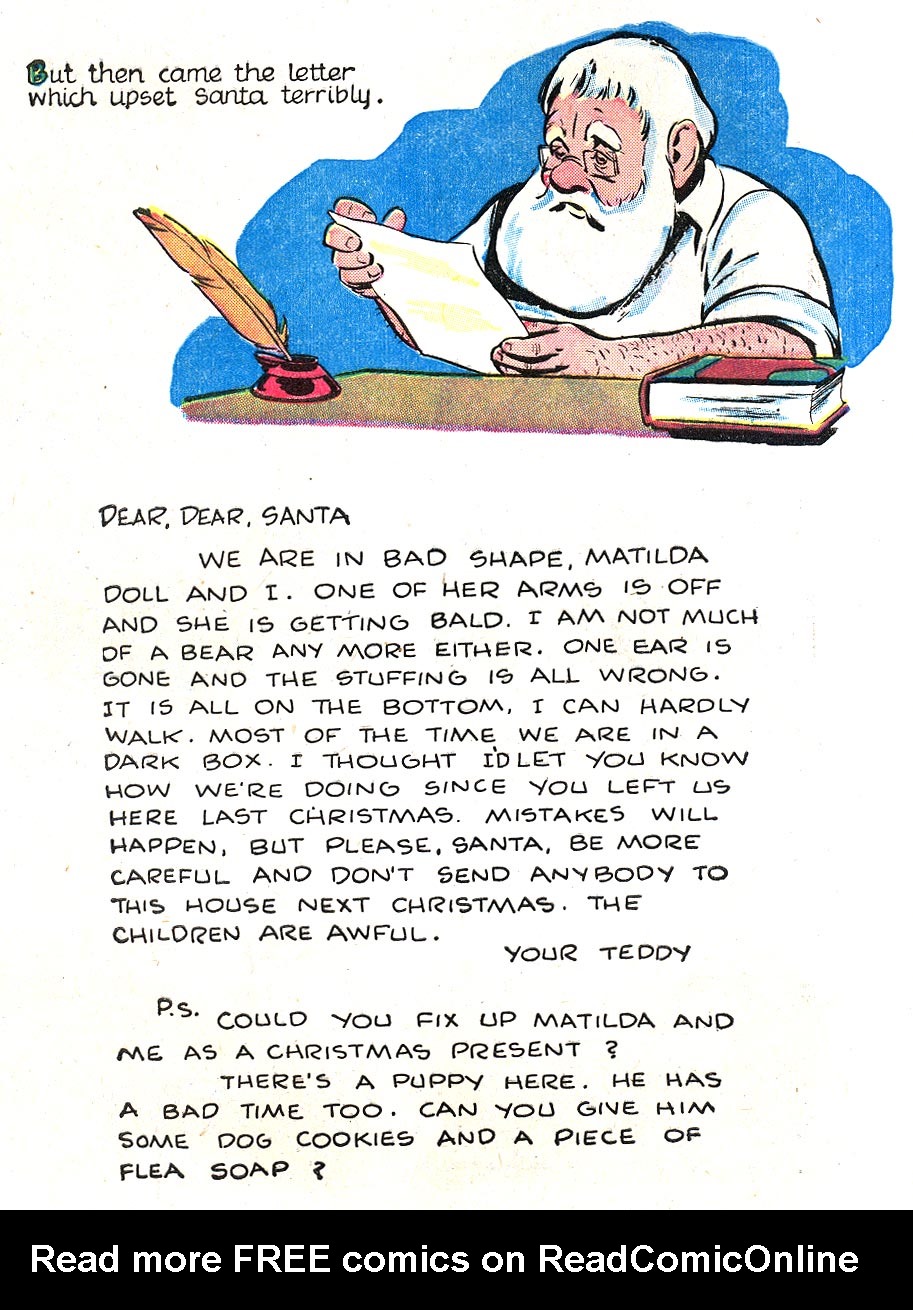 But then came the letter
which upset Santa terribly.
DEAR, DEAR, SANTA
WE ARE IN BAD SHAPE, MATILDA
DOLL AND I. ONE OF HER ARMS IS OFF
AND SHE IS GETTING BALD. I AM NOT MUCH
OF A BEAR ANY MORE EITHER. ONE EAR IS
GONE AND THE STUFFING IS ALL WRONG.
IT IS ALL ON THE BOTTOM, I CAN HARDLY
WALK. MOST OF THE TIME WE ARE IN A
DARK BOX. I THOUGHT I'D LET YOU KNOW
HOW WE'RE DOING SINCE YOU LEFT US
HERE LAST CHRISTMAS. MISTAKES WILL
HAPPEN, BUT PLEASE, SANTA, BE MORE
CAREFUL AND DON'T SEND ANYBODY TO
THIS HOUSE NEXT CHRISTMAS. THE
CHILDREN ARE AWFUL.
YOUR TEDDY
P.S. COULD YOU FIX UP MATILDA AND
ME AS A CHRISTMAS PRESENT?
THERE'S A PUPPY HERE. HE HAS
A BAD TIME TOO. CAN YOU GIVE HIM
SOME DOG COOKIES AND A PIECE OF
FLEA SOAP?
Read more FREE comics on ReadComicOnline